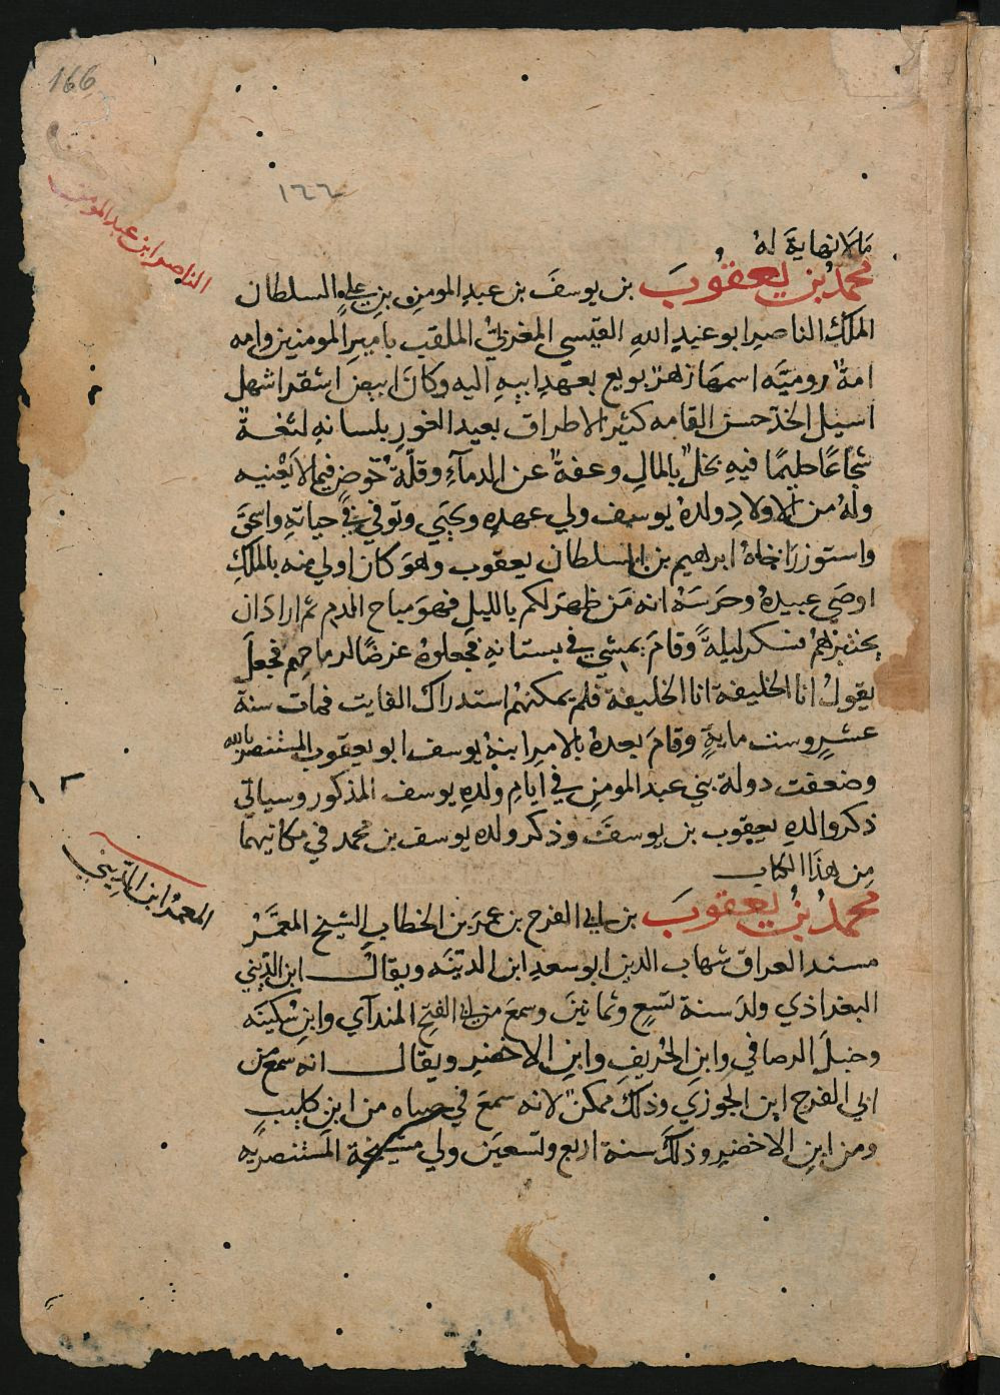 166
١٦٦
الناصر ابن عبد المومن
مَا لَا نهايةَ لهُ
محمدُ بنُ يعقُوبَ بن يوسفَ بن عبدِ المومنِ بنِ عليٍ السلطان
الملكُ الناصر ابو عبدِ اللهِ القيسي المغربيُّ الملقب باميرِ المومنين وامه
امةٌ روميَّه اسمهَا زهرُ بويع بعهدِ ابيهِ اليه وكانَ ابيضَ اشقر اشهل
اسيل الخدّ حسن القامه كثير الاطراق بعيد الغورِ بلسانهِ لثغةٌ
شجاعًا حليمًا فيهِ بخلٌ بالمالِ وعفةٌ عن الدمآءِ وقلّةُ خوضٍ فيما لا يَعْنيه
ولهُ من الاولادِ ولدهُ يوسف ولي عهدهِ ويحيَي وتوفي في حياتهِ واسحق
واستوزرَ اخاهُ ابرهيم بن السلطان يعقوب وهوَ كان اولي منه بالملكِ
اوصَي عبيدهُ وحرسَهُ انه مَن ظهرَ لكم بالليلِ فهوَ مباح الدم ثم ارادَ ان
يختبرهُم فسكر ليلةً وقامَ يمشي في بستانهِ فجعلوهُ غرضًا لرماحِهِم فجعلَ
يقولُ انا الخليفة انا الخليفة فلم يمكنهُم استدراك الفايت فمات سنة
عشرٍ وست مايةٍ وقامَ بعدهُ بالامرِ ابنهُ يوسف ابو يعقوب المستنصر بالله
وضعفت دولة بني عبد المومنِ في ايامِ ولدهِ يوسف المذكور وسياتي
ذكر والدهِ يعقوب بن يوسفَ وذكر ولده يوسف بن محمد في مكانيهما
مِن هذَا الكتاب
المعمر ابن الدّينِي
محمدُ بنُ يعقوبَ بن ابي الفرج بن عمرَ بن الخطابِ الشيخ المعمَّرُ
مسند العراق شهاب الدين ابو سعدٍ ابن الدينَه ويقالُ ابن الدّيني
البغداذي ولدَ سنة تسعٍ وثمانين وسمعَ من ابي الفتحِ المندآي وابنِ سُكينَه
وحنبلَ الرصافي وابنِ الخُريفِ وابنِ الاخضرِ ويقال انه سمعَ من
ابي الفرجِ ابن الجوزي وذلكَ ممكنٌ لانه سمعَ في صباه من ابنِ كليبٍ
ومن ابنِ الاخضرِ وذلكَ سنة اربع وتسعينَ ولي مشيخة المستنصريه